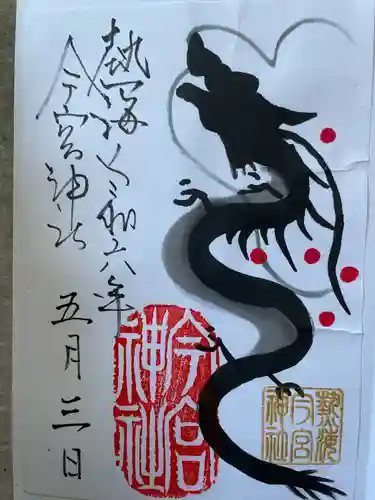 熱海
令和六年
五月三日
今宮神社
今宮
神社
熱海
今宮
神社